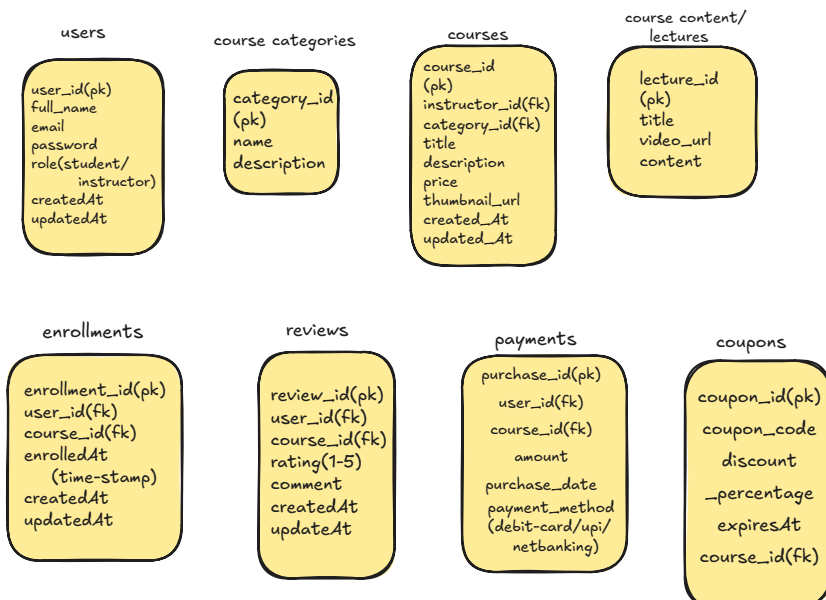 users
user_id(pk)
full_name
email
password
role(student/
instructor)
createdAt
updatedAt
course categories
category_id
(pk)
name
description
courses
course_id
(pk)
instructor_id(fk)
category_id(fk)
title
description
price
thumbnail_url
created_At
updated_At
course content/
lectures
lecture_id
(pk)
title
video_url
content
enrollments
enrollment_id(pk)
user_id(fk)
course_id(fk)
enrolledAt
(time-stamp)
createdAt
updatedAt
reviews
review_id(pk)
user_id(fk)
course_id(fk)
rating(1-5)
comment
createdAt
updateAt
payments
purchase_id(pk)
user_id(fk)
course_id(fk)
amount
purchase_date
payment_method
(debit-card/upi/
netbanking)
coupons
coupon_id(pk)
coupon_code
discount
_percentage
expiresAt
course_id(fk)